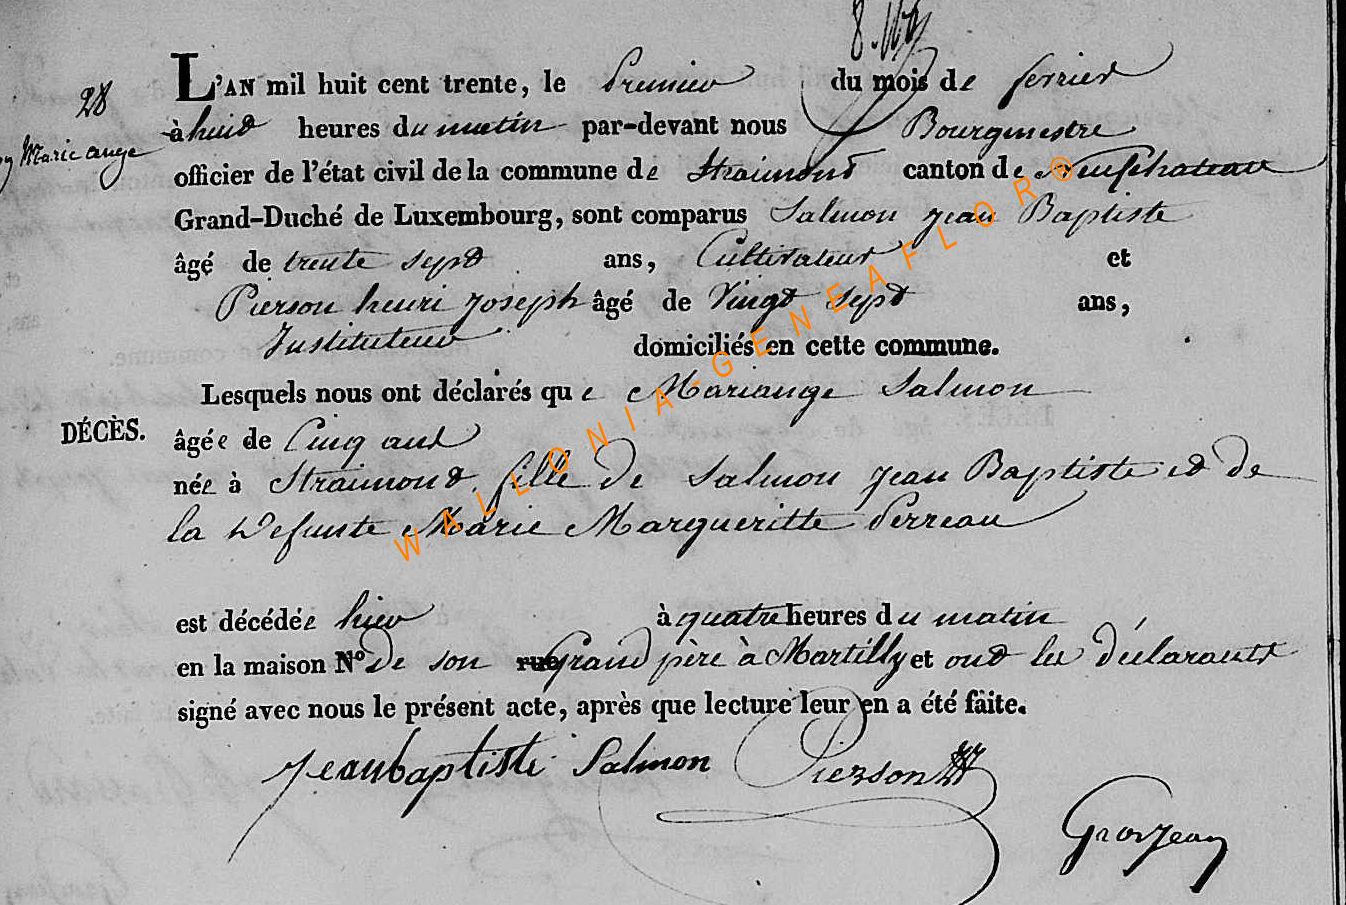 28
Marie ange
L'AN mil huit cent trente, le Premier du mois de fevrier
à huit heures du matin par-devant nous Bourgmestre
officier de l'état civil de la commune de Straimont canton de Neufchateau
Grand-Duché de Luxembourg, sont comparus Salmon jean Baptiste
âgé de trente sept ans, Cultivateur et
Pierson henri joseph âgé de Vingt sept ans,
Instituteur domiciliés en cette commune.
Lesquels nous ont déclarés que Mariange Salmon
DÉCÈS.
âgée de Cinq ans
née à Straimont fille de Salmon jean Baptiste et de
la Defunte Marie Margueritte Perreau
est décédée hier à quatre heures du matin
en la maison N° de son rue Grand père à Martilly et ont les déclarants
signé avec nous le présent acte, après que lecture leur en a été faite.
jeanbaptiste Salmon Pierson
Grosjean
WALLONIA-GENEAFLOR®